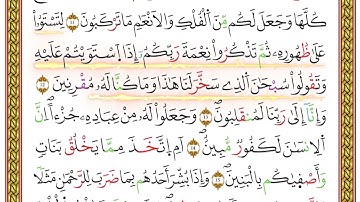 كُلَّهَا وَجَعَلَ لَكُم مِّنَ ٱلْفُلْكِ وَٱلْأَنْعَٰمِ مَا تَرْكَبُونَ ١١ لِتَسْتَوُۥا۟
عَلَىٰ ظُهُورِهِۦ ثُمَّ تَذْكُرُوا۟ نِعْمَةَ رَبِّكُمُۥٓ إِذَا ٱسْتَوَيْتُمْ عَلَيْهِ
وَتَقُولُوا۟ سُبْحَٰنَ ٱلَّذِے سَخَّرَ لَنَا هَٰذَا وَمَا كُنَّا لَهُۥ مُقْرِنِينَ ١٢
وَإِنَّآ إِلَىٰ رَبِّنَا لَمُنقَلِبُونَ ١٣ وَجَعَلُوا۟ لَهُۥ مِنْ عِبَادِهِۦ جُزْءًا اِنَّ
ٱلِانسَٰنَ لَكَفُورٌ مُّبِينٌ ١٤ أَمِ ٱتَّخَذَ مِمَّا يَخْلُقُ بَنَاتٍ
وَأَصْفَيٰكُم بِٱلْبَنِينَ ١٥ وَإِذَا بُشِّرَ أَحَدُهُم بِمَا ضَرَبَ لِلرَّحْمَٰنِ مَثَلًا